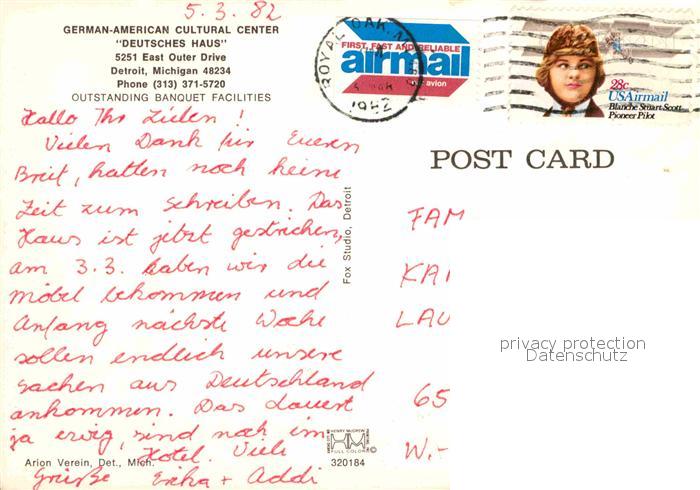 5.3.82
GERMAN-AMERICAN CULTURAL CENTER
"DEUTSCHES HAUS"
5251 East Outer Drive
Detroit, Michigan 48234
Phone (313) 371-5720
OUTSTANDING BANQUET FACILITIES
Hallo Ihr Lieben!
Vielen Dank für Eueren
Breif, hatten noch keine
Zeit zum schreiben. Das
Haus ist jetzt gestrichen,
am 3.3. haben wir die
Möbel bekommen und
Anfang nächste Woche
sollen endlich unsere
Sachen aus Deutschland
ankommen. Das dauert
ja ewig, sind noch im
Hotel. Viele
Grüße Erika + Addi
Arion Verein, Det., Mich.
Fox Studio, Detroit
HENRY McGREW
HM
FULL COLOR
320184
ROYAL OAK, M
1982
FIRST, FAST AND RELIABLE
airmail
par avion
28c
USAirmail
Blanche Stuart Scott
Pioneer Pilot
POST CARD
FAM
KAI
LAU
65
W.-
privacy protection
Datenschutz